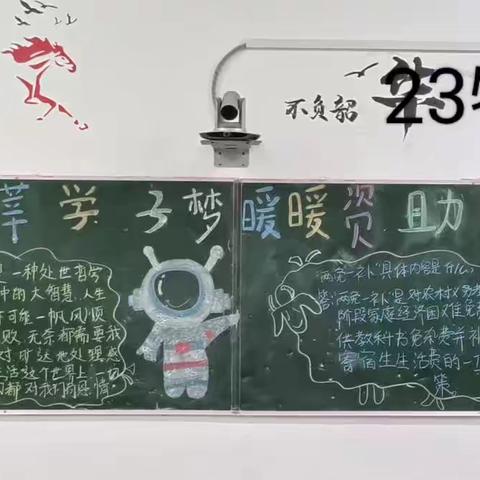 不负韶华
23
莘学子梦 暖暖资助
一种处世哲学
中的大智慧,人生
不可能一帆风顺
败,无奈都需要我
对旷达地处理感
活这个世界上一切
都对我们感恩情
"两免一补"具体内容是什么
答:两免一补是对农村义务教
阶段家庭经济困难免
供教科书免杂费并补
寄宿生生活费的一
策